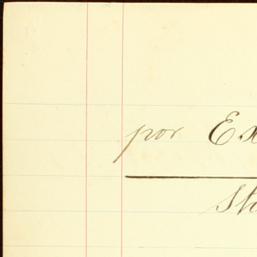 por Ex
Sh